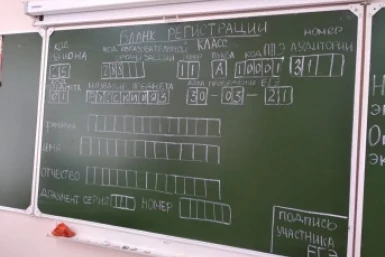 БЛАНК РЕГИСТРАЦИИ
КОД РЕГИОНА КОД ОБРАЗОВАТЕЛЬНОЙ ОРГАНИЗАЦИИ КЛАСС НОМЕР БУКВА КОД ППЭ НОМЕР АУДИТОРИИ
11 А 10001 31
КОД ПРЕДМЕТА НАЗВАНИЕ ПРЕДМЕТА ДАТА ПРОВЕДЕНИЯ ЕГЭ
01 РУССКИЙ ЯЗ 30-03-21
ФАМИЛИЯ
ИМЯ
ОТЧЕСТВО
ДОКУМЕНТ СЕРИЯ НОМЕР
ПОДПИСЬ
УЧАСТНИКА
ЕГЭ